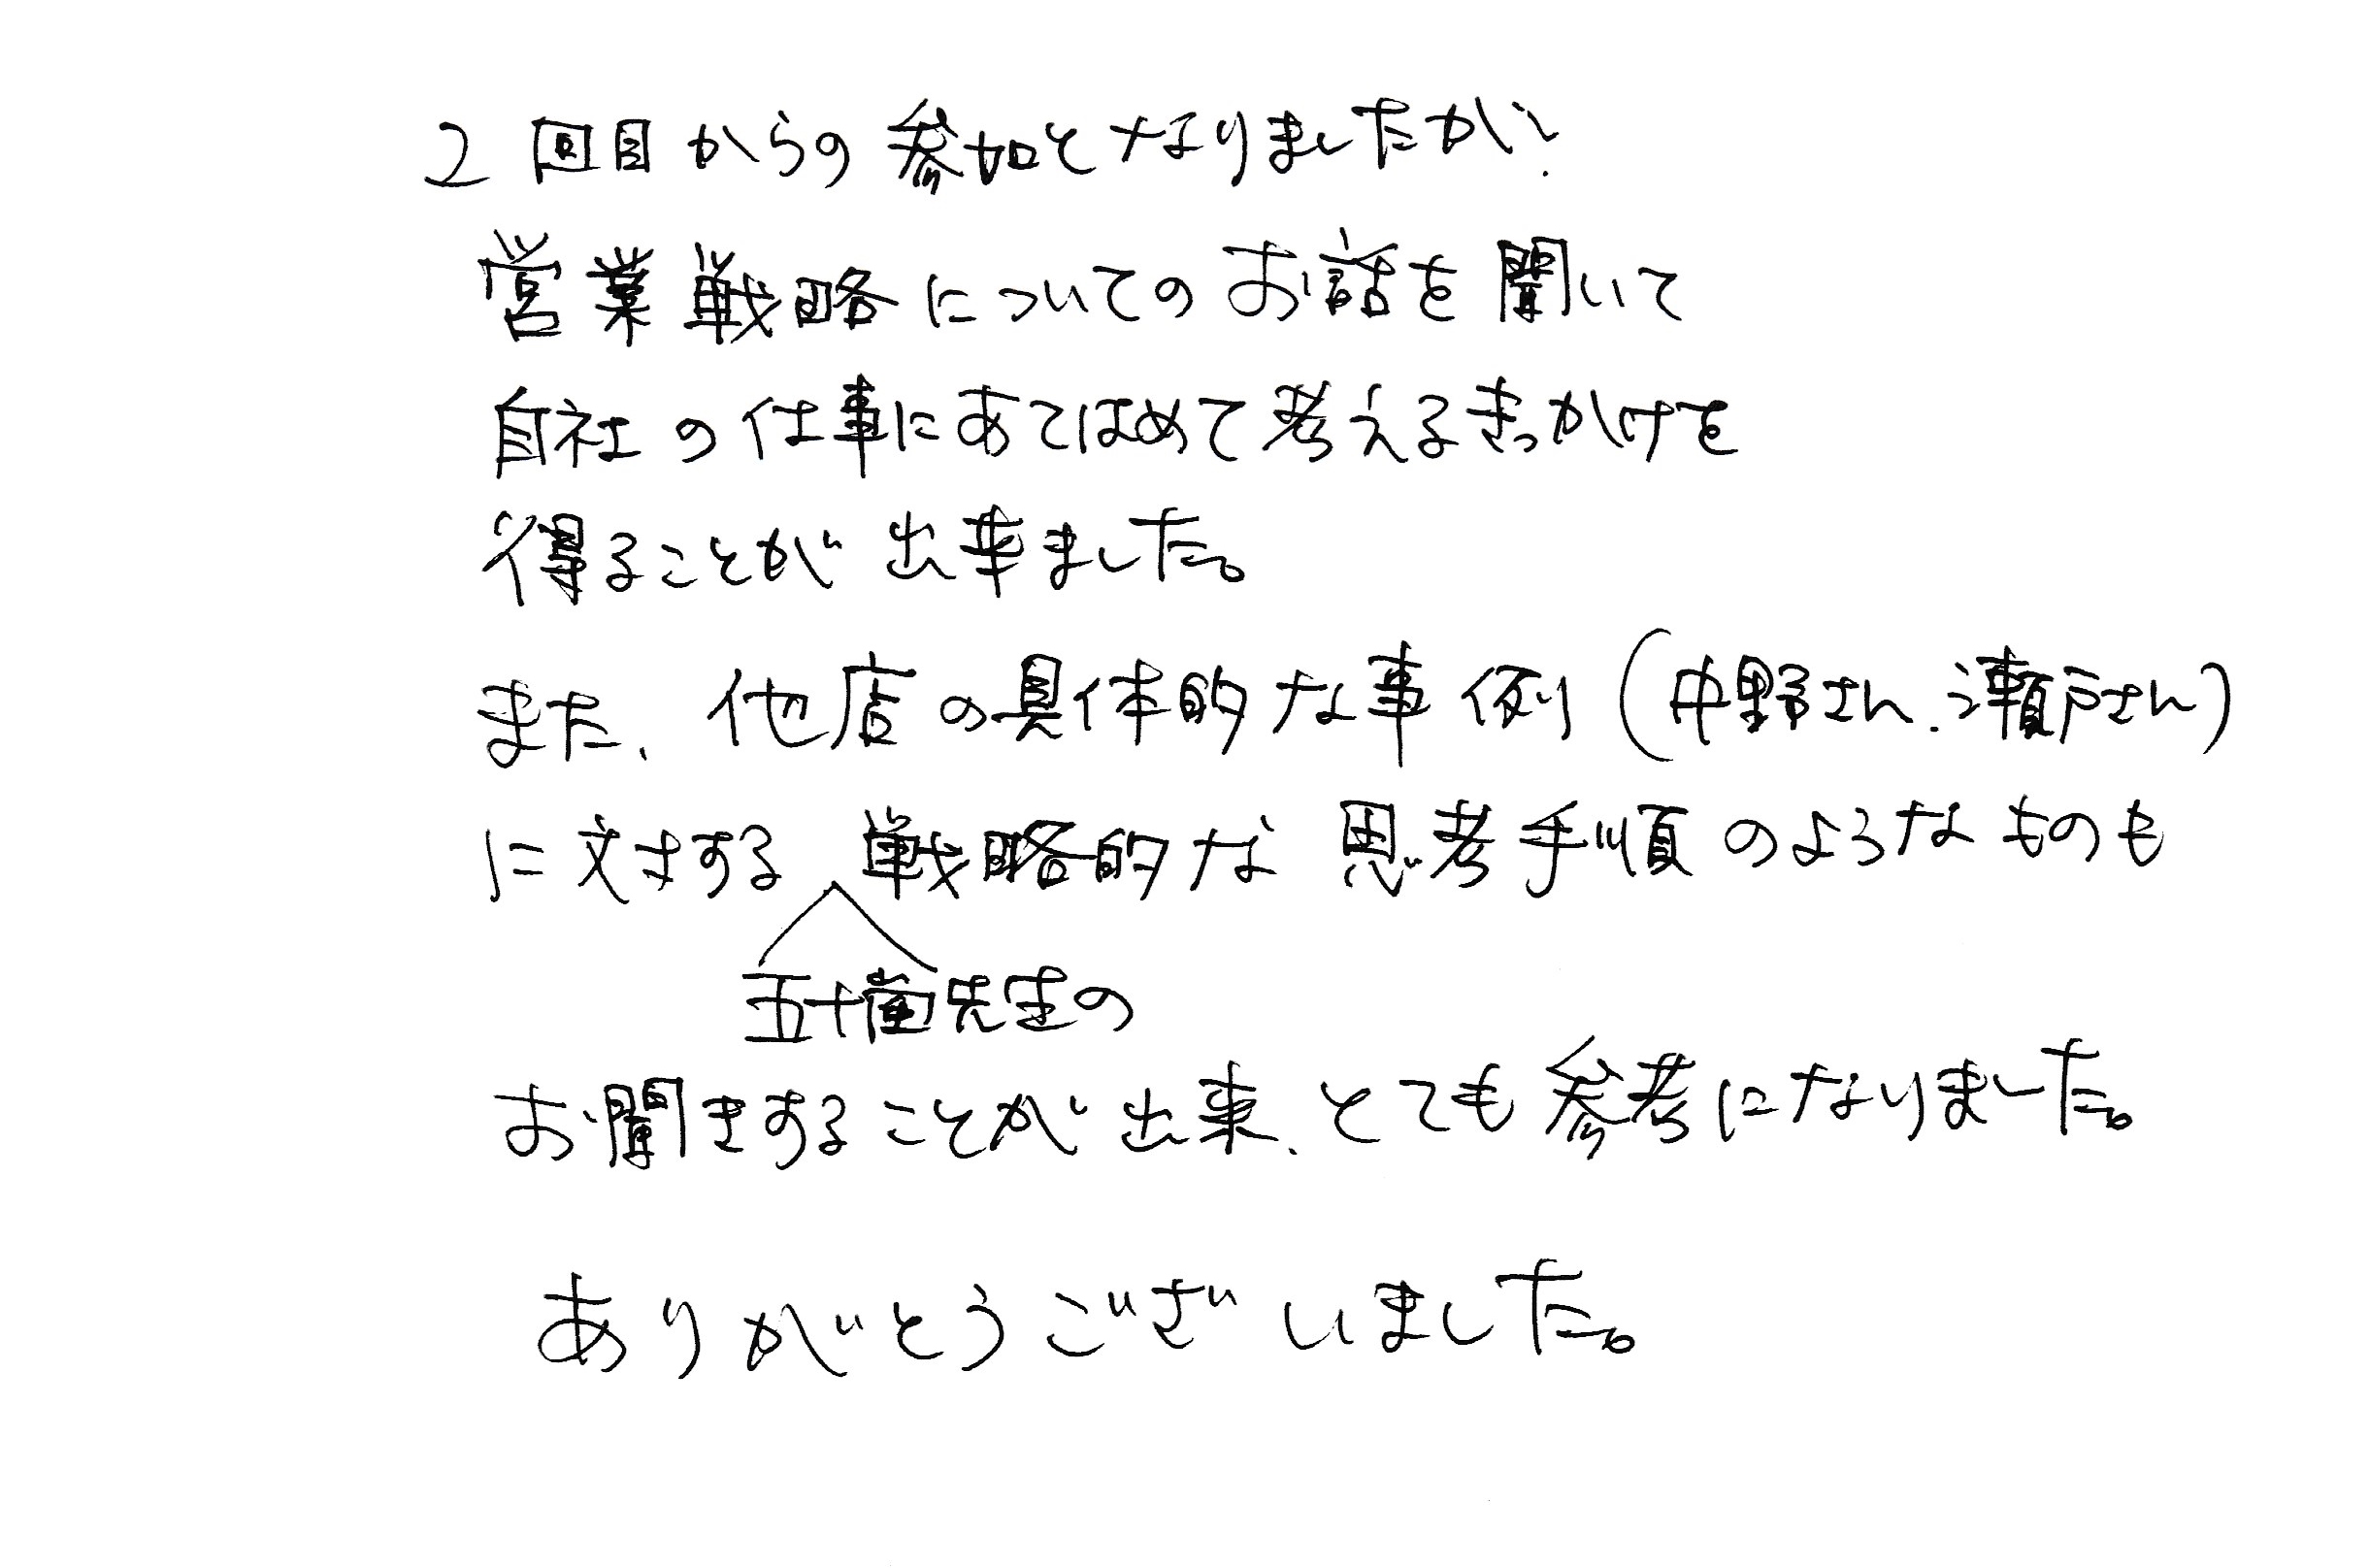 2回目からの参加となりましたが、
営業戦略についてのお話を聞いて
自社の仕事にあてはめて考えるきっかけを
得ることが出来ました。
また、他店の具体的な事例(中野さん、瀬戸さん)
に対する戦略的な思考手順のようなものも
五十嵐先生の
お聞きすることが出来、とても参考になりました。
ありがとうございました。